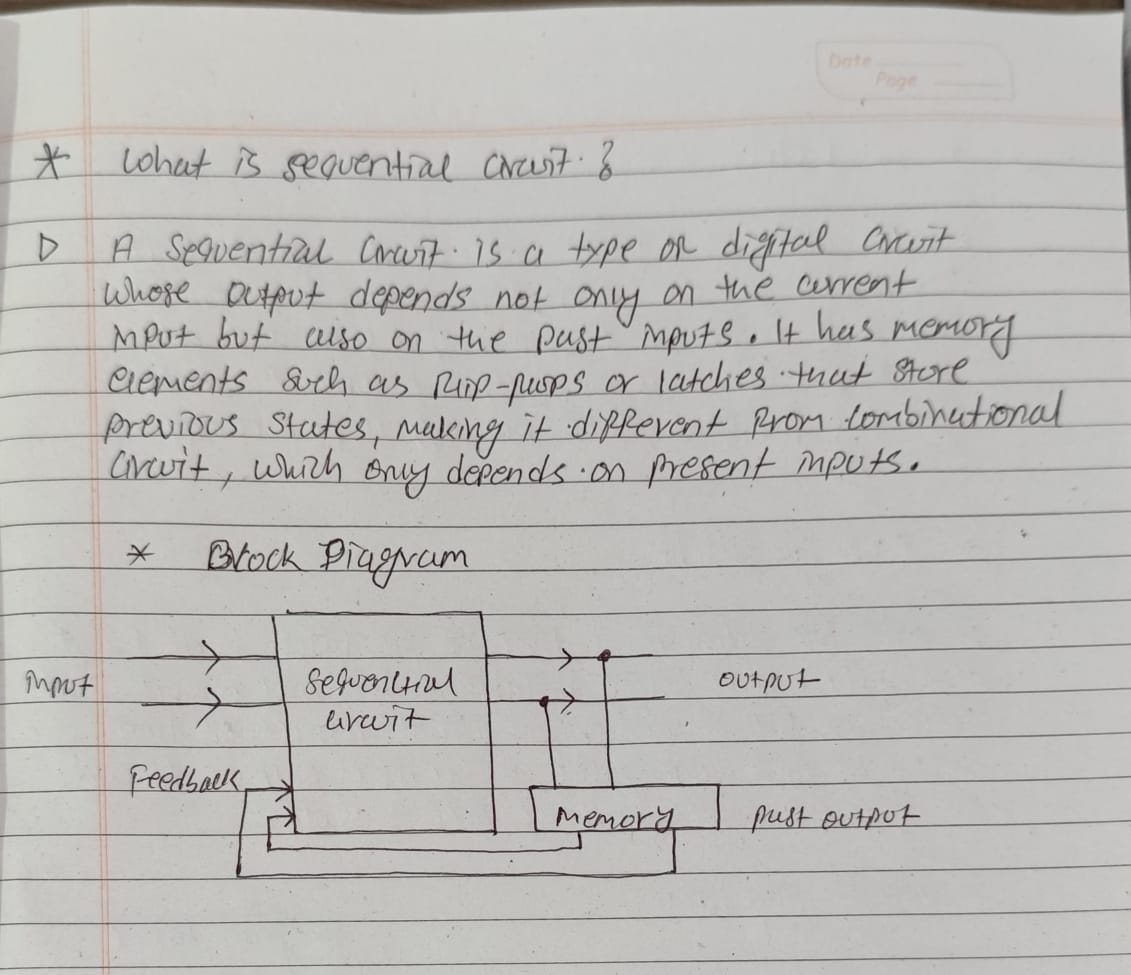 Date
Page
* What is sequential circuit ?
▷ A Sequential Circuit is a type of digital Circuit
whose output depends not only on the current
input but also on the past inputs. It has memory
elements such as flip-flops or latches that store
previous States, making it different from combinational
Circuit, which only depends on present inputs.
* Block Diagram
input
Sequential
circuit
output
Feedback
Memory
past output